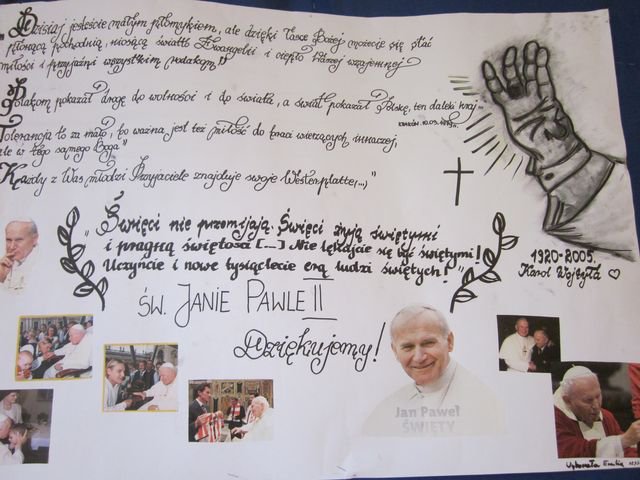 „Dzisiaj jesteście małym płomykiem, ale dzięki łasce Bożej możecie się stać
płonącą pochodnią, niosącą światło Ewangelii i ciepło Waszej wzajemnej
miłości i przyjaźni wszystkim rodakom”
Polakom pokazał drogę do wolności i do świata, a świat pokazał Polskę, ten daleki kraj...
Tolerancja to za mało, bo ważna jest też miłość do braci wierzących inaczej,
ale w tego samego Boga”
Każdy z Was młodzi Przyjaciele znajduje swoje Westerplatte(...)
„Święci nie przemijają. Święci żyją świętymi
i pragną świętości [...] Nie lękajcie się być świętymi!
Uczyńcie i nowe tysiąclecie erą ludzi świętych!”
1920-2005.
Karol Wojtyła ♡
ŚW. JANIE PAWLE II
Dziękujemy!
Jan Paweł
ŚWIĘTY
Emilia